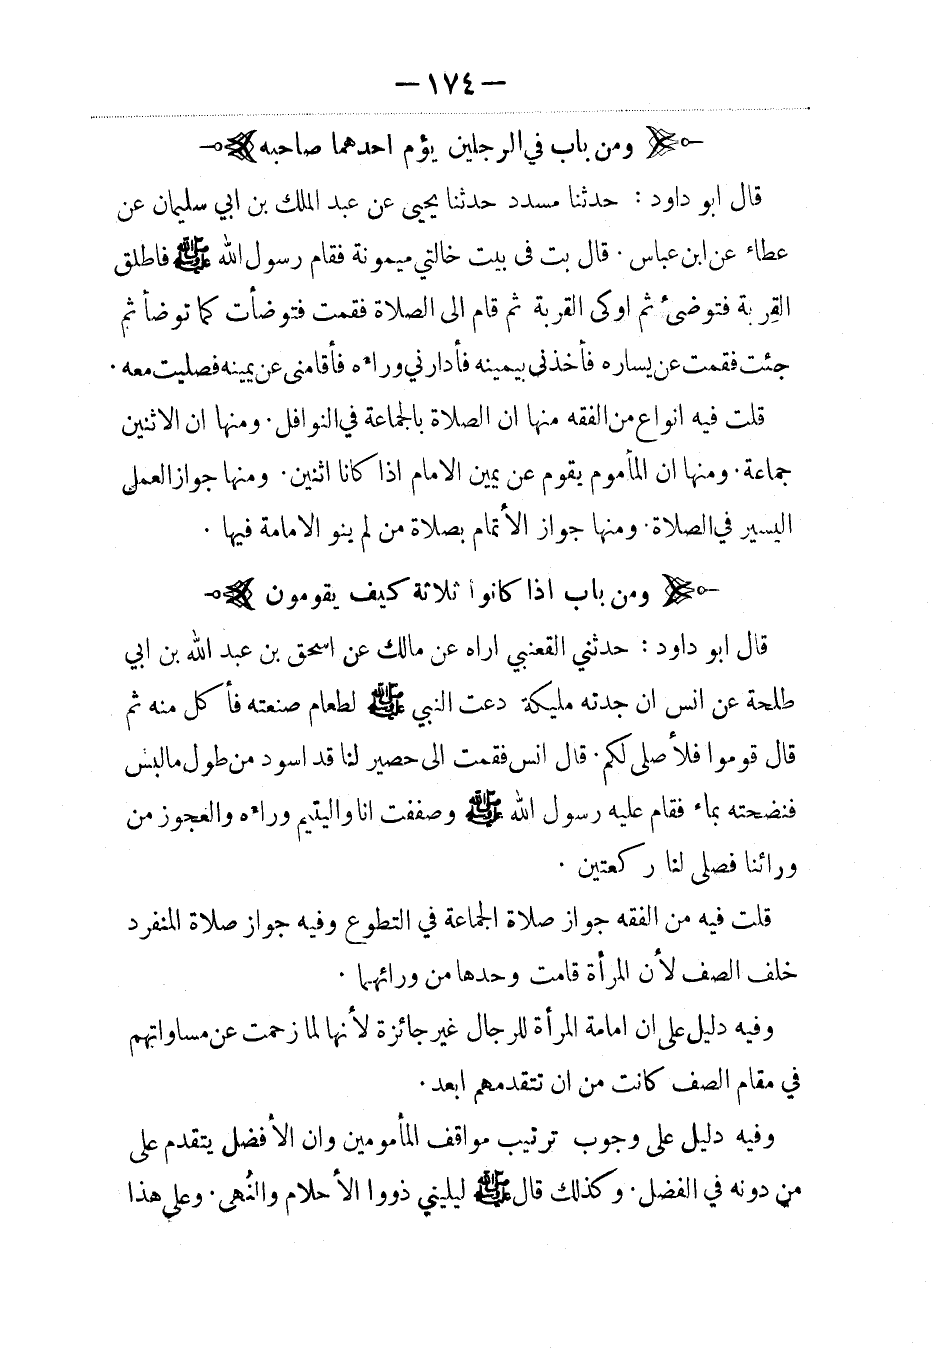 — ١٧٤ —
ومن باب في الرجلين يؤم احدهما صاحبه
قال ابو داود : حدثنا مسدد حدثنا يحيى عن عبد الملك بن ابي سليمان عن
عطاء عن ابن عباس . قال بت فى بيت خالتي ميمونة فقام رسول الله ﷺ فاطلق
القربة فتوضىء ثم اوكى القربة ثم قام الى الصلاة فقمت فتوضأت كما توضأ ثم
جئت فقمت عن يساره فأخذنى بيمينه فأدارني وراءه فأقامنى عن يمينه فصليت معه .
قلت فيه انواع من الفقه منها ان الصلاة بالجماعة في النوافل . ومنها ان الاثنين
جماعة . ومنها ان المأموم يقوم عن يمين الامام اذا كانا اثنين . ومنها جواز العمل
اليسير في الصلاة . ومنها جواز الأتمام بصلاة من لم ينو الامامة فيها .
ومن باب اذا كانوا ثلاثة كيف يقومون
قال ابو داود : حدثني القعنبي اراه عن مالك عن اسحق بن عبد الله بن ابي
طلحة عن انس ان جدته مليكة دعت النبي ﷺ لطعام صنعته فأكل منه ثم
قال قوموا فلأصلى لكم . قال انس فقمت الى حصير لنا قد اسود من طول مالبس
فنضحته بماء فقام عليه رسول الله ﷺ وصففت انا واليتيم وراءه والعجوز من
ورائنا فصلى لنا ركعتين .
قلت فيه من الفقه جواز صلاة الجماعة في التطوع وفيه جواز صلاة المنفرد
خلف الصف لأن المرأة قامت وحدها من ورائهما .
وفيه دليل على ان امامة المرأة للرجال غير جائزة لأنها لما زحمت عن مساواتهم
في مقام الصف كانت من ان تتقدمهم ابعد .
وفيه دليل على وجوب ترتيب مواقف المأمومين وان الأفضل يتقدم على
من دونه في الفضل . وكذلك قال ﷺ ليليني ذووا الأحلام والنُهى . وعلى هذا